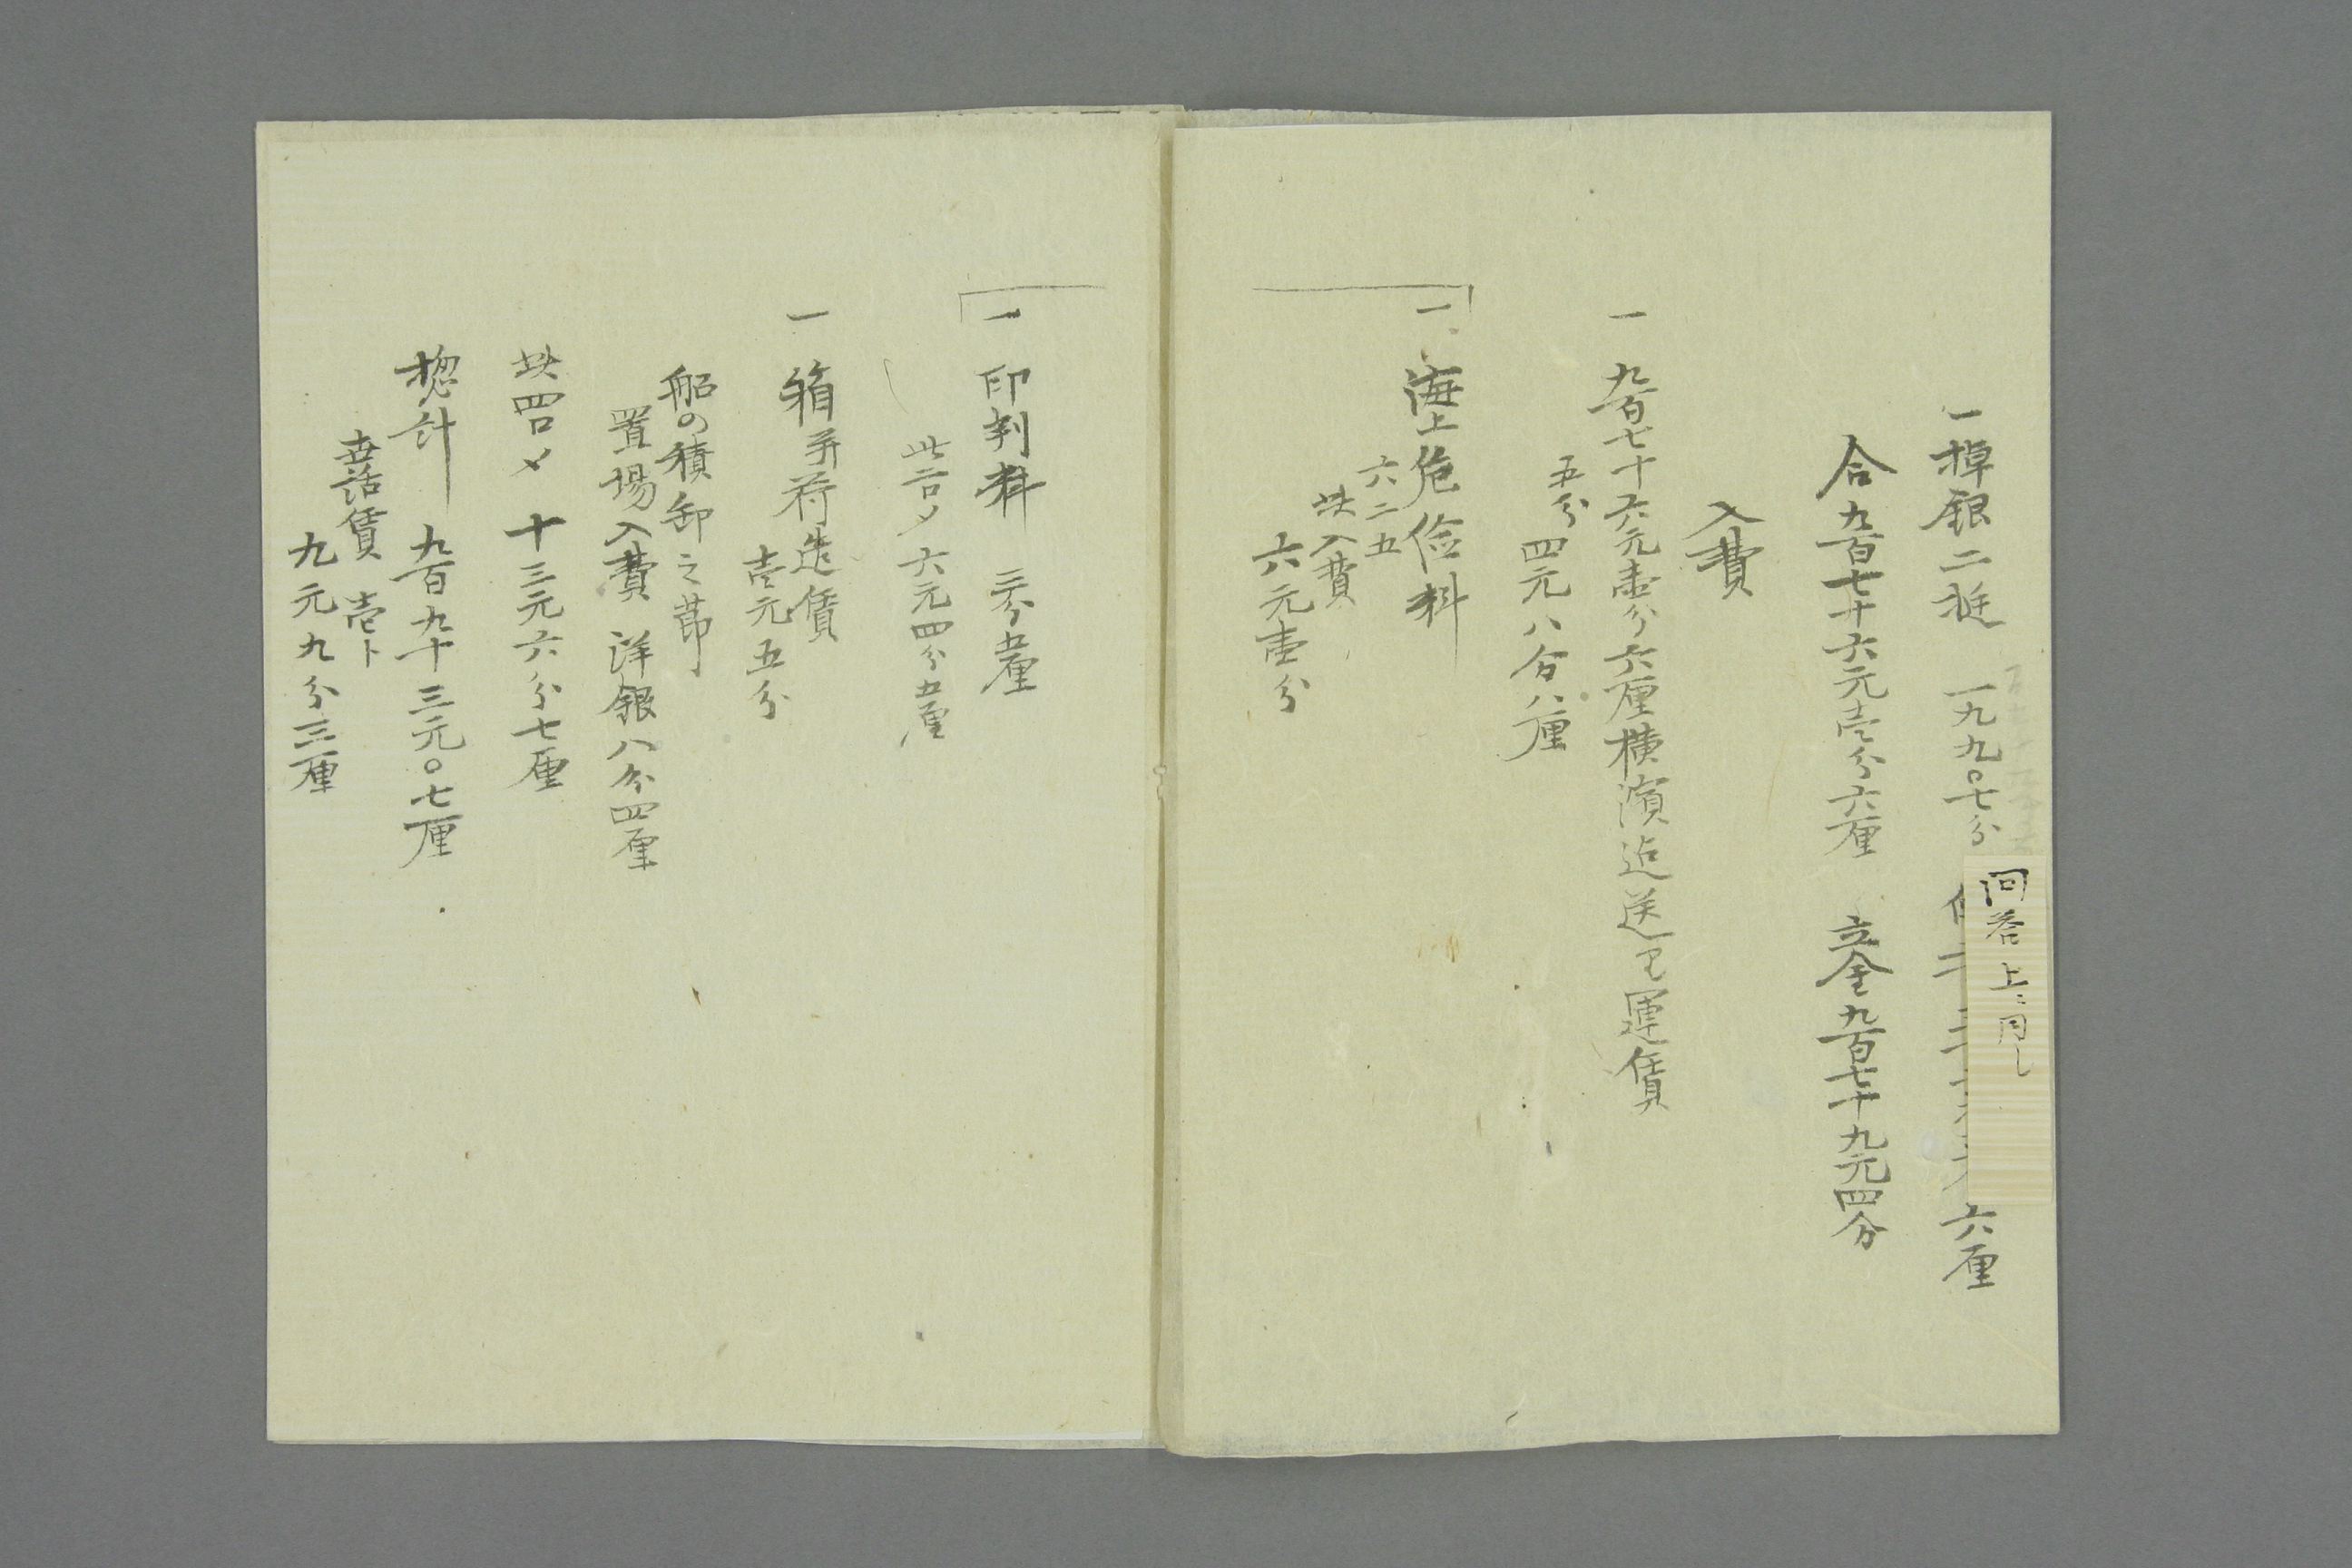 一棹銀二挺　一九九〇七分　六厘
回答上ニ同し
合九百七十六元壱分六厘　立金九百七十九元四分
入費
一　九百七十六元壱分六厘横濱迠送り運賃
五分　四元八分八厘
一　海上危倹料
六二五
此入費
六元壱分
一　印判料　三分五厘
此〆六元四分五厘
一　箱并荷造賃
壱元五分
船の積卸之節
置場入費　洋銀八分四厘
此四口〆　十三元六分七厘
惣計　九百九十三元〇七厘
世話賃　壱ト
九元九分三厘